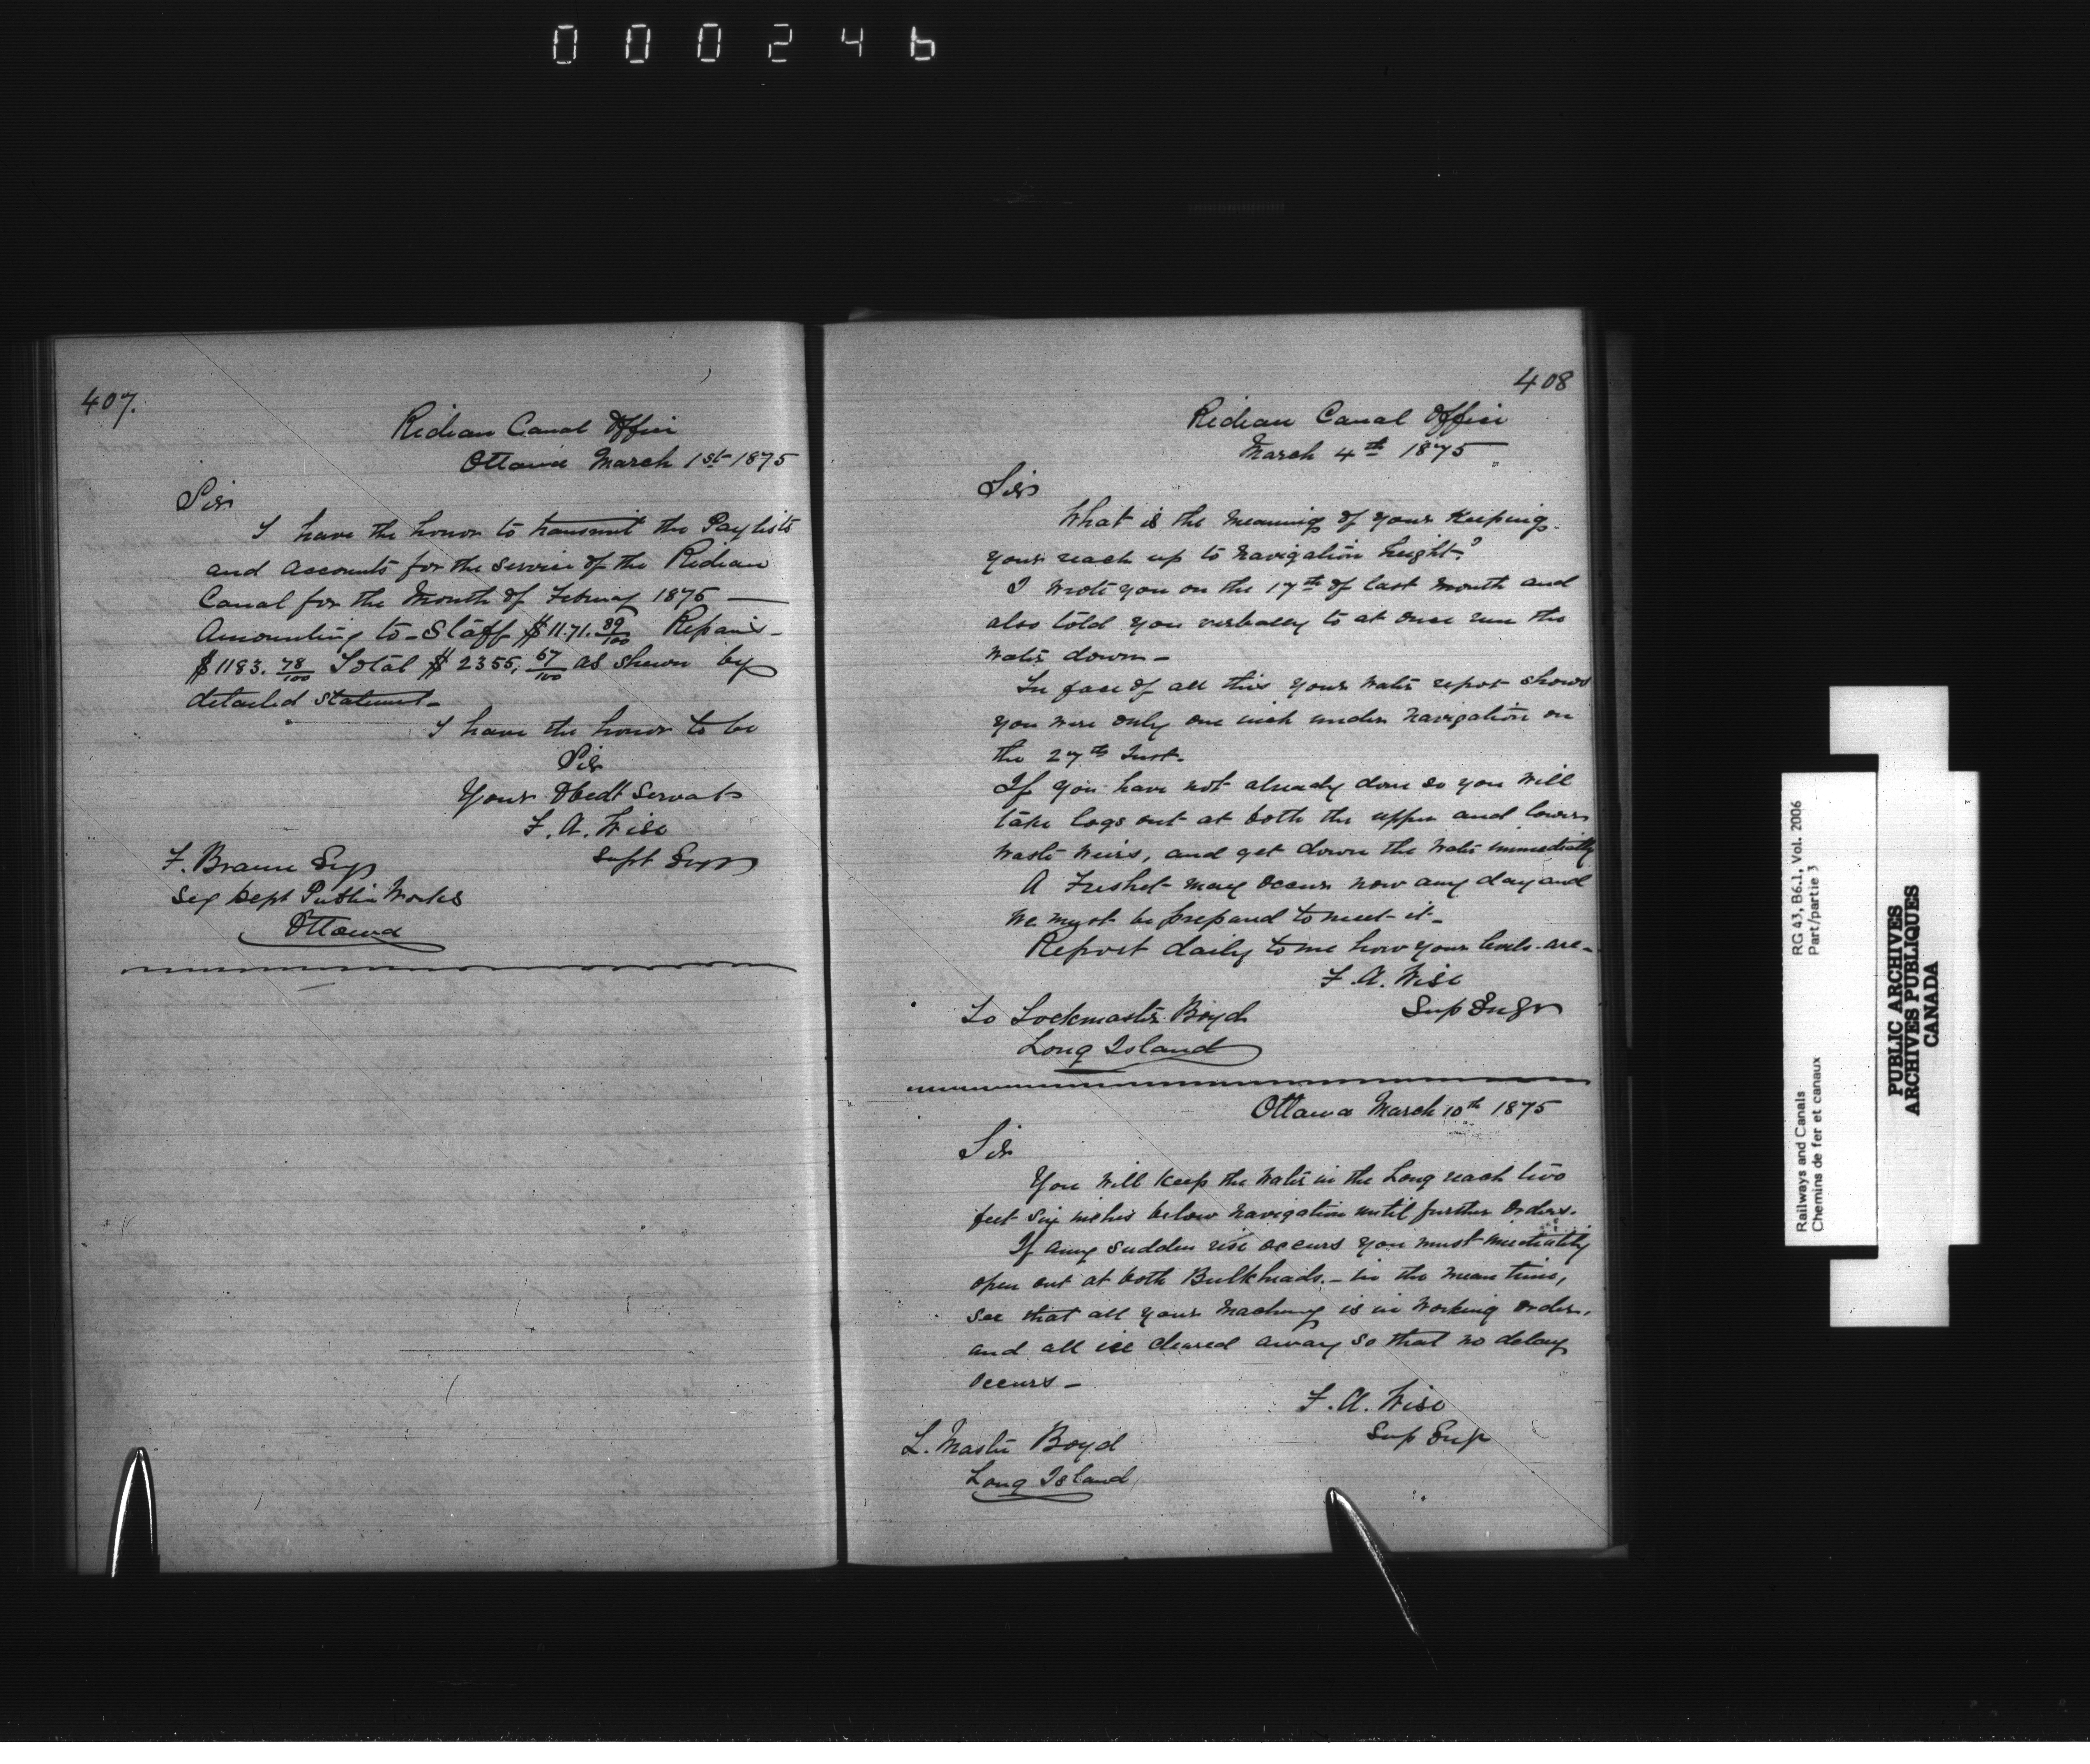 000246
407.
Rideau Canal Office
Ottawa March 1st 1875
Sir
I have the honor to transmit the Paylists
and Accounts for the Service of the Rideau
Canal for the Month of February 1875 —
Amounting to - Staff $1171. 89/100 Repairs -
$1183. 78/100 Total $2355, 67/100 as shewn by
detailed statement -
I have the honor to be
Sir
Your Obedt Servat
F. A. Wise
Supt Engr
F. Braun Esq
Secy Dept Public Works
Ottawa
408
Rideau Canal Office
March 4th 1875
Sir
What is the meaning of your keeping
your reach up to navigation height?
I wrote you on the 17th of last month and
also told you verbally to at once run the
water down -
In face of all this your water report shows
you were only one inch under navigation on
the 27th Inst.
If you have not already done so you will
take logs out at both the upper and lower
waste weirs, and get down the water immediately
A Freshet may occur now any day and
we must be prepared to meet it -
Report daily to me how your levels are -
F. A. Wise
Sup Engr
To Lockmaster Boyd
Long Island
Ottawa March 10th 1875
Sir
You will keep the water in the Long reach two
feet six inches below navigation until further orders.
If any sudden rise occurs you must immediately
open out at both Bulkheads. - in the mean time,
see that all your machinery is in working order,
and all ice cleared away so that no delay
occurs -
F. A. Wise
Sup Engr
L. Master Boyd
Long Island
Railways and Canals
Chemins de fer et canaux
RG 43, B6.1, Vol. 2006
Part/partie 3
PUBLIC ARCHIVES
ARCHIVES PUBLIQUES
CANADA